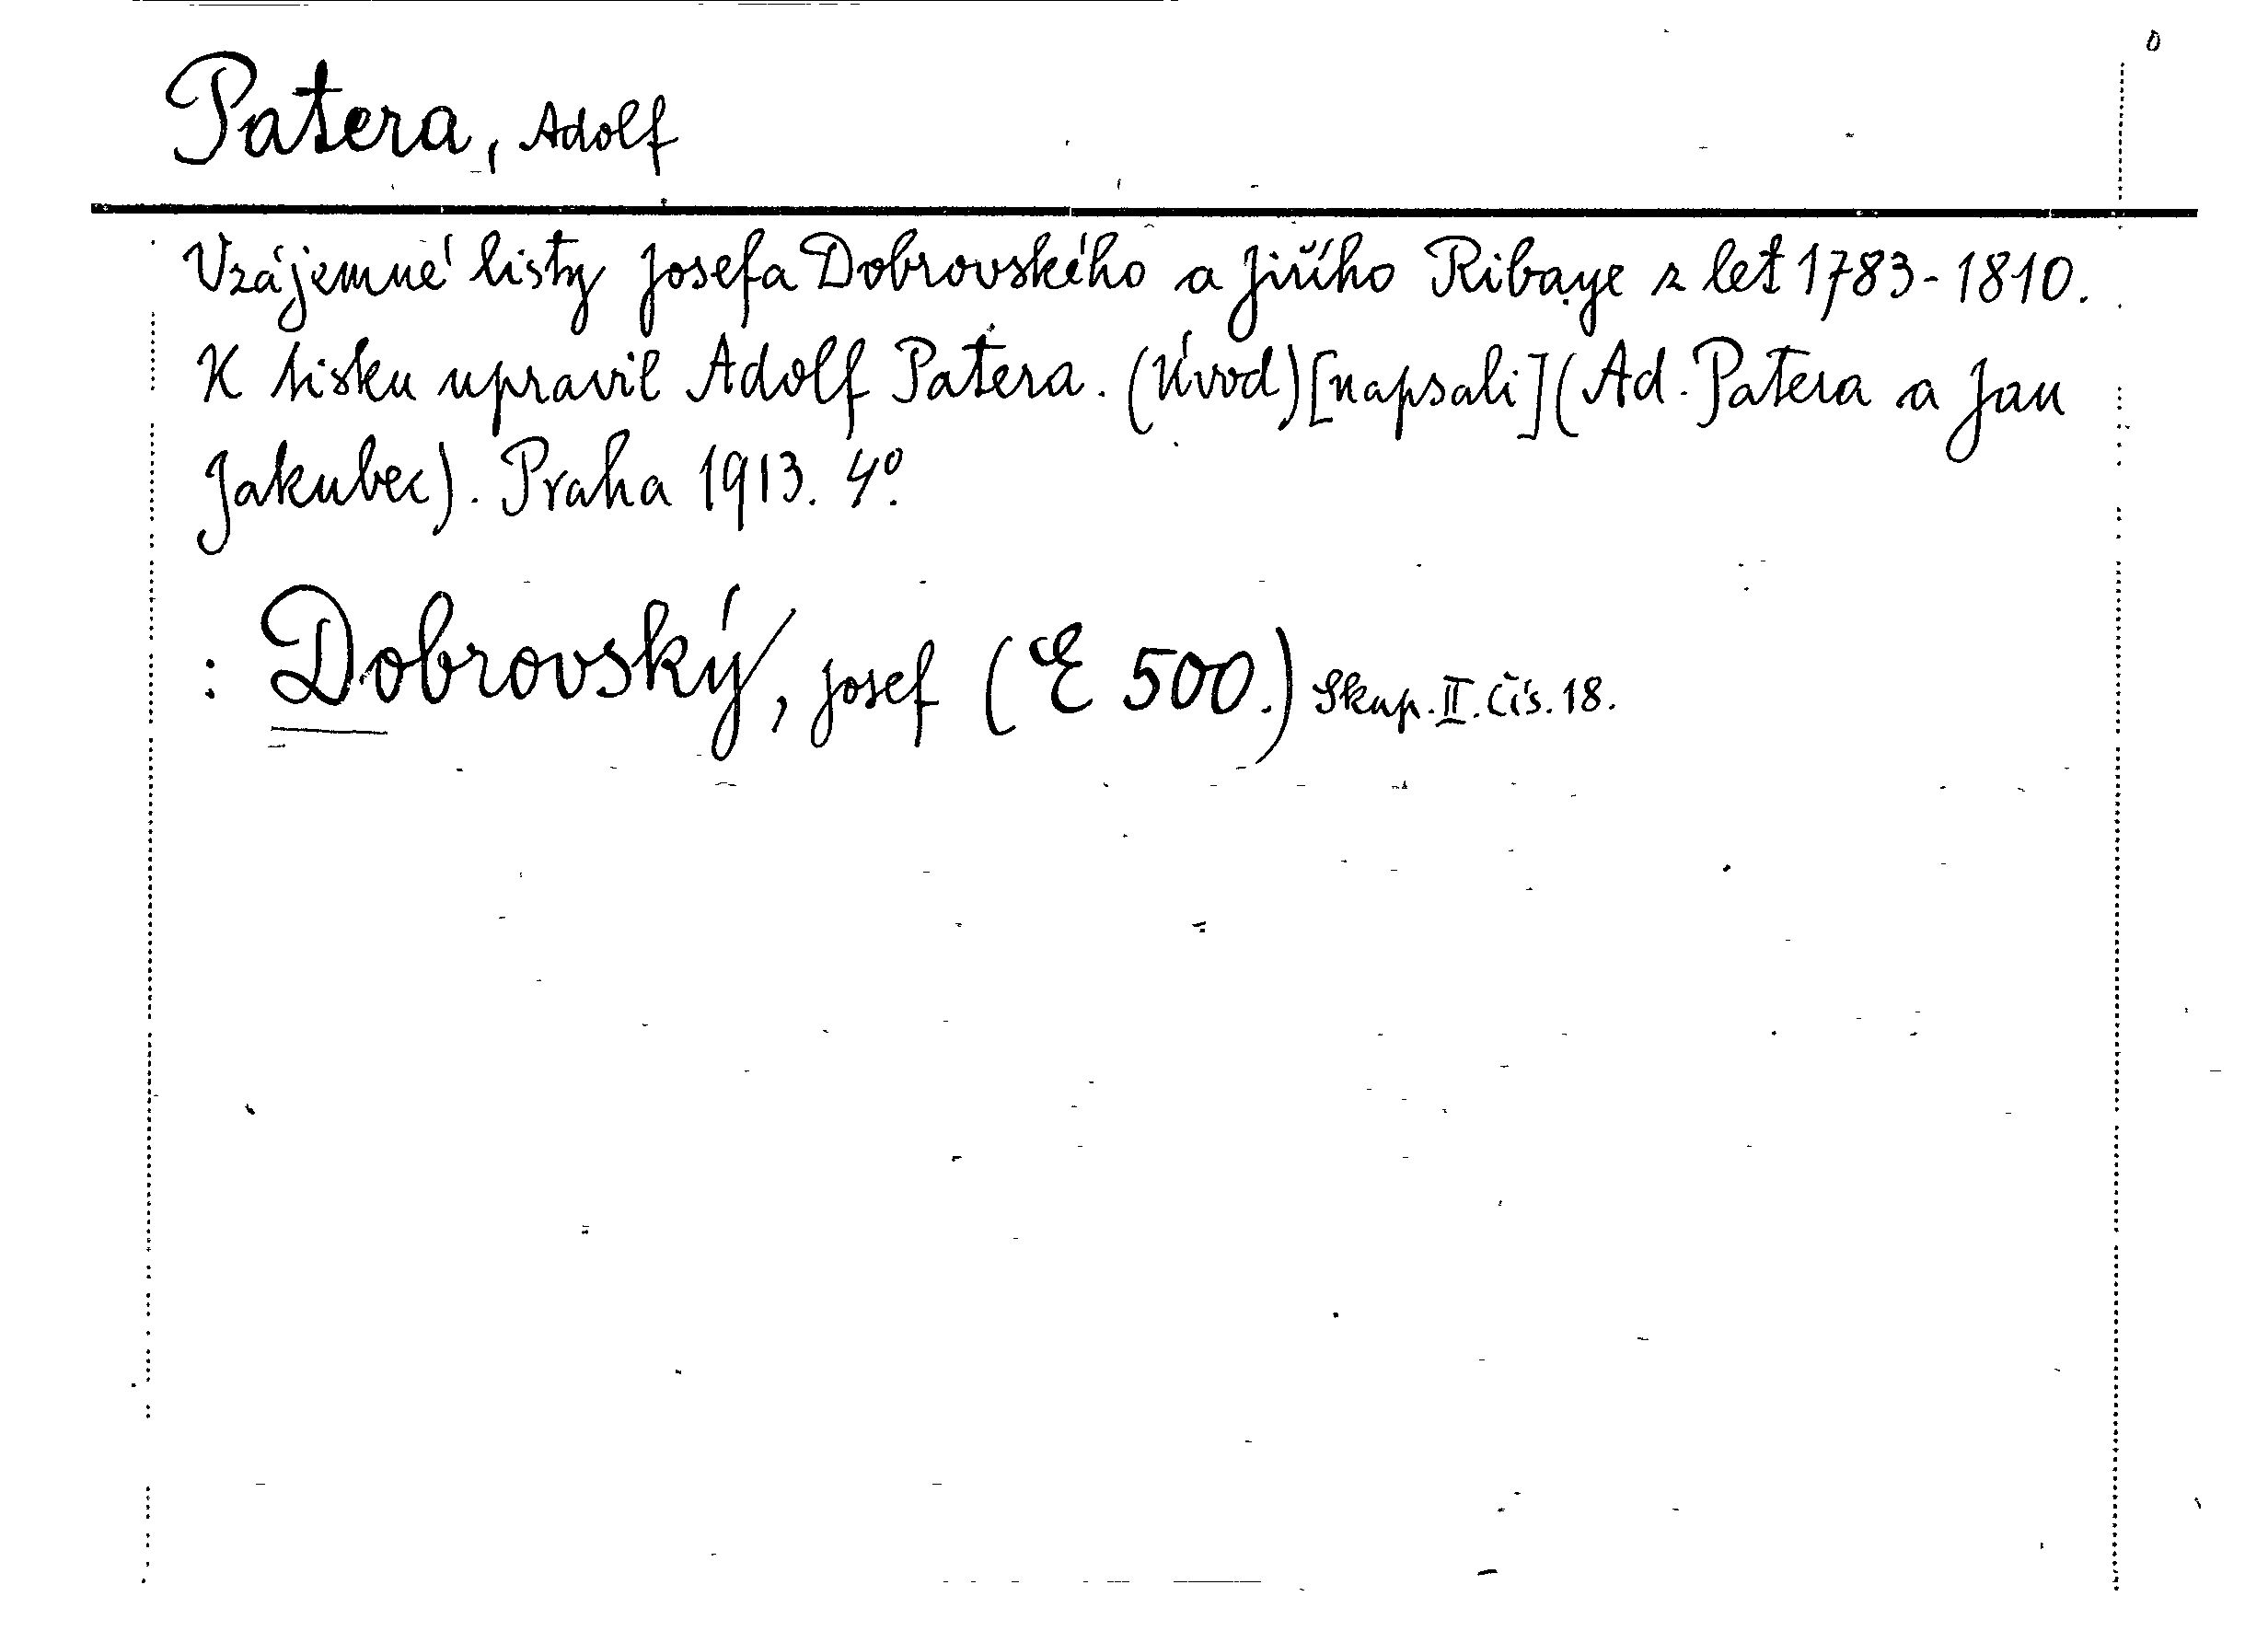 0
Patera, Adolf
Vzájemné listy Josefa Dobrovského a Jiřího Ribaye z let 1783-1810.
K tisku upravil Adolf Patera. (Úvod) [napsali] (Ad. Patera a Jan
Jakubec). Praha 1913. 4º.
: Dobrovský, Josef (E 500.) Skup. II. čís. 18.